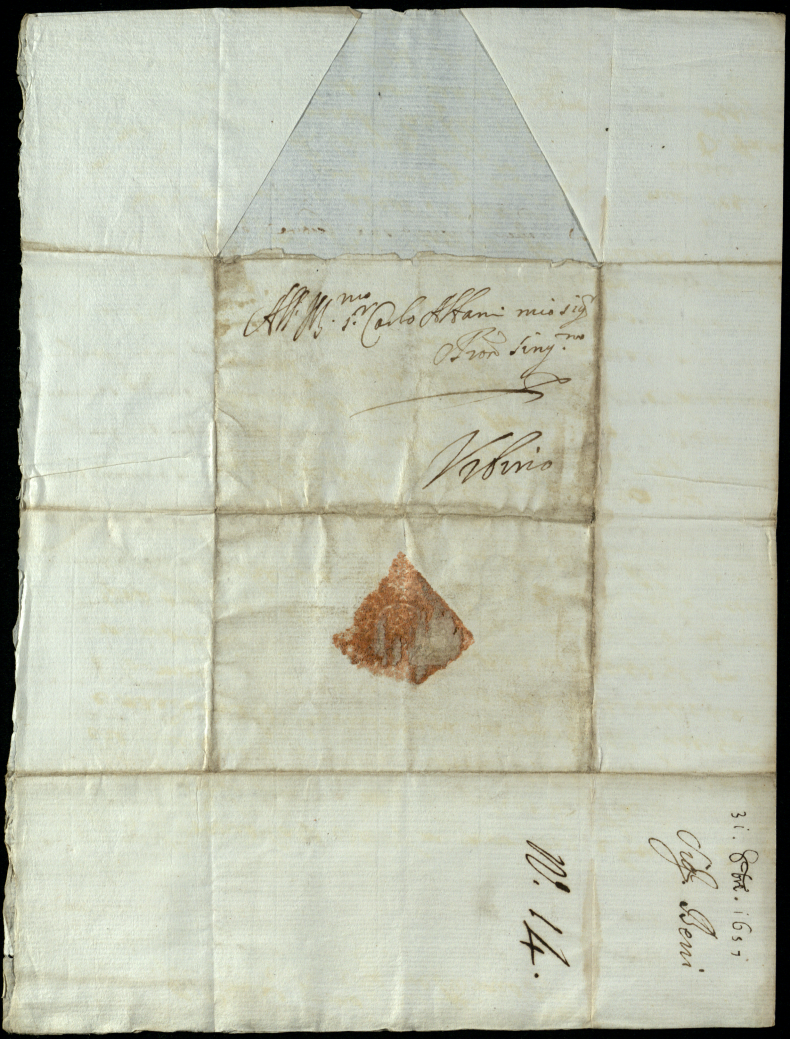 All' Ill.mo s.r Carlo Albani mio sig.r
Pron Sing.mo
Urbino
N. 14.
31. 8bre. 1651
Sig. Beni